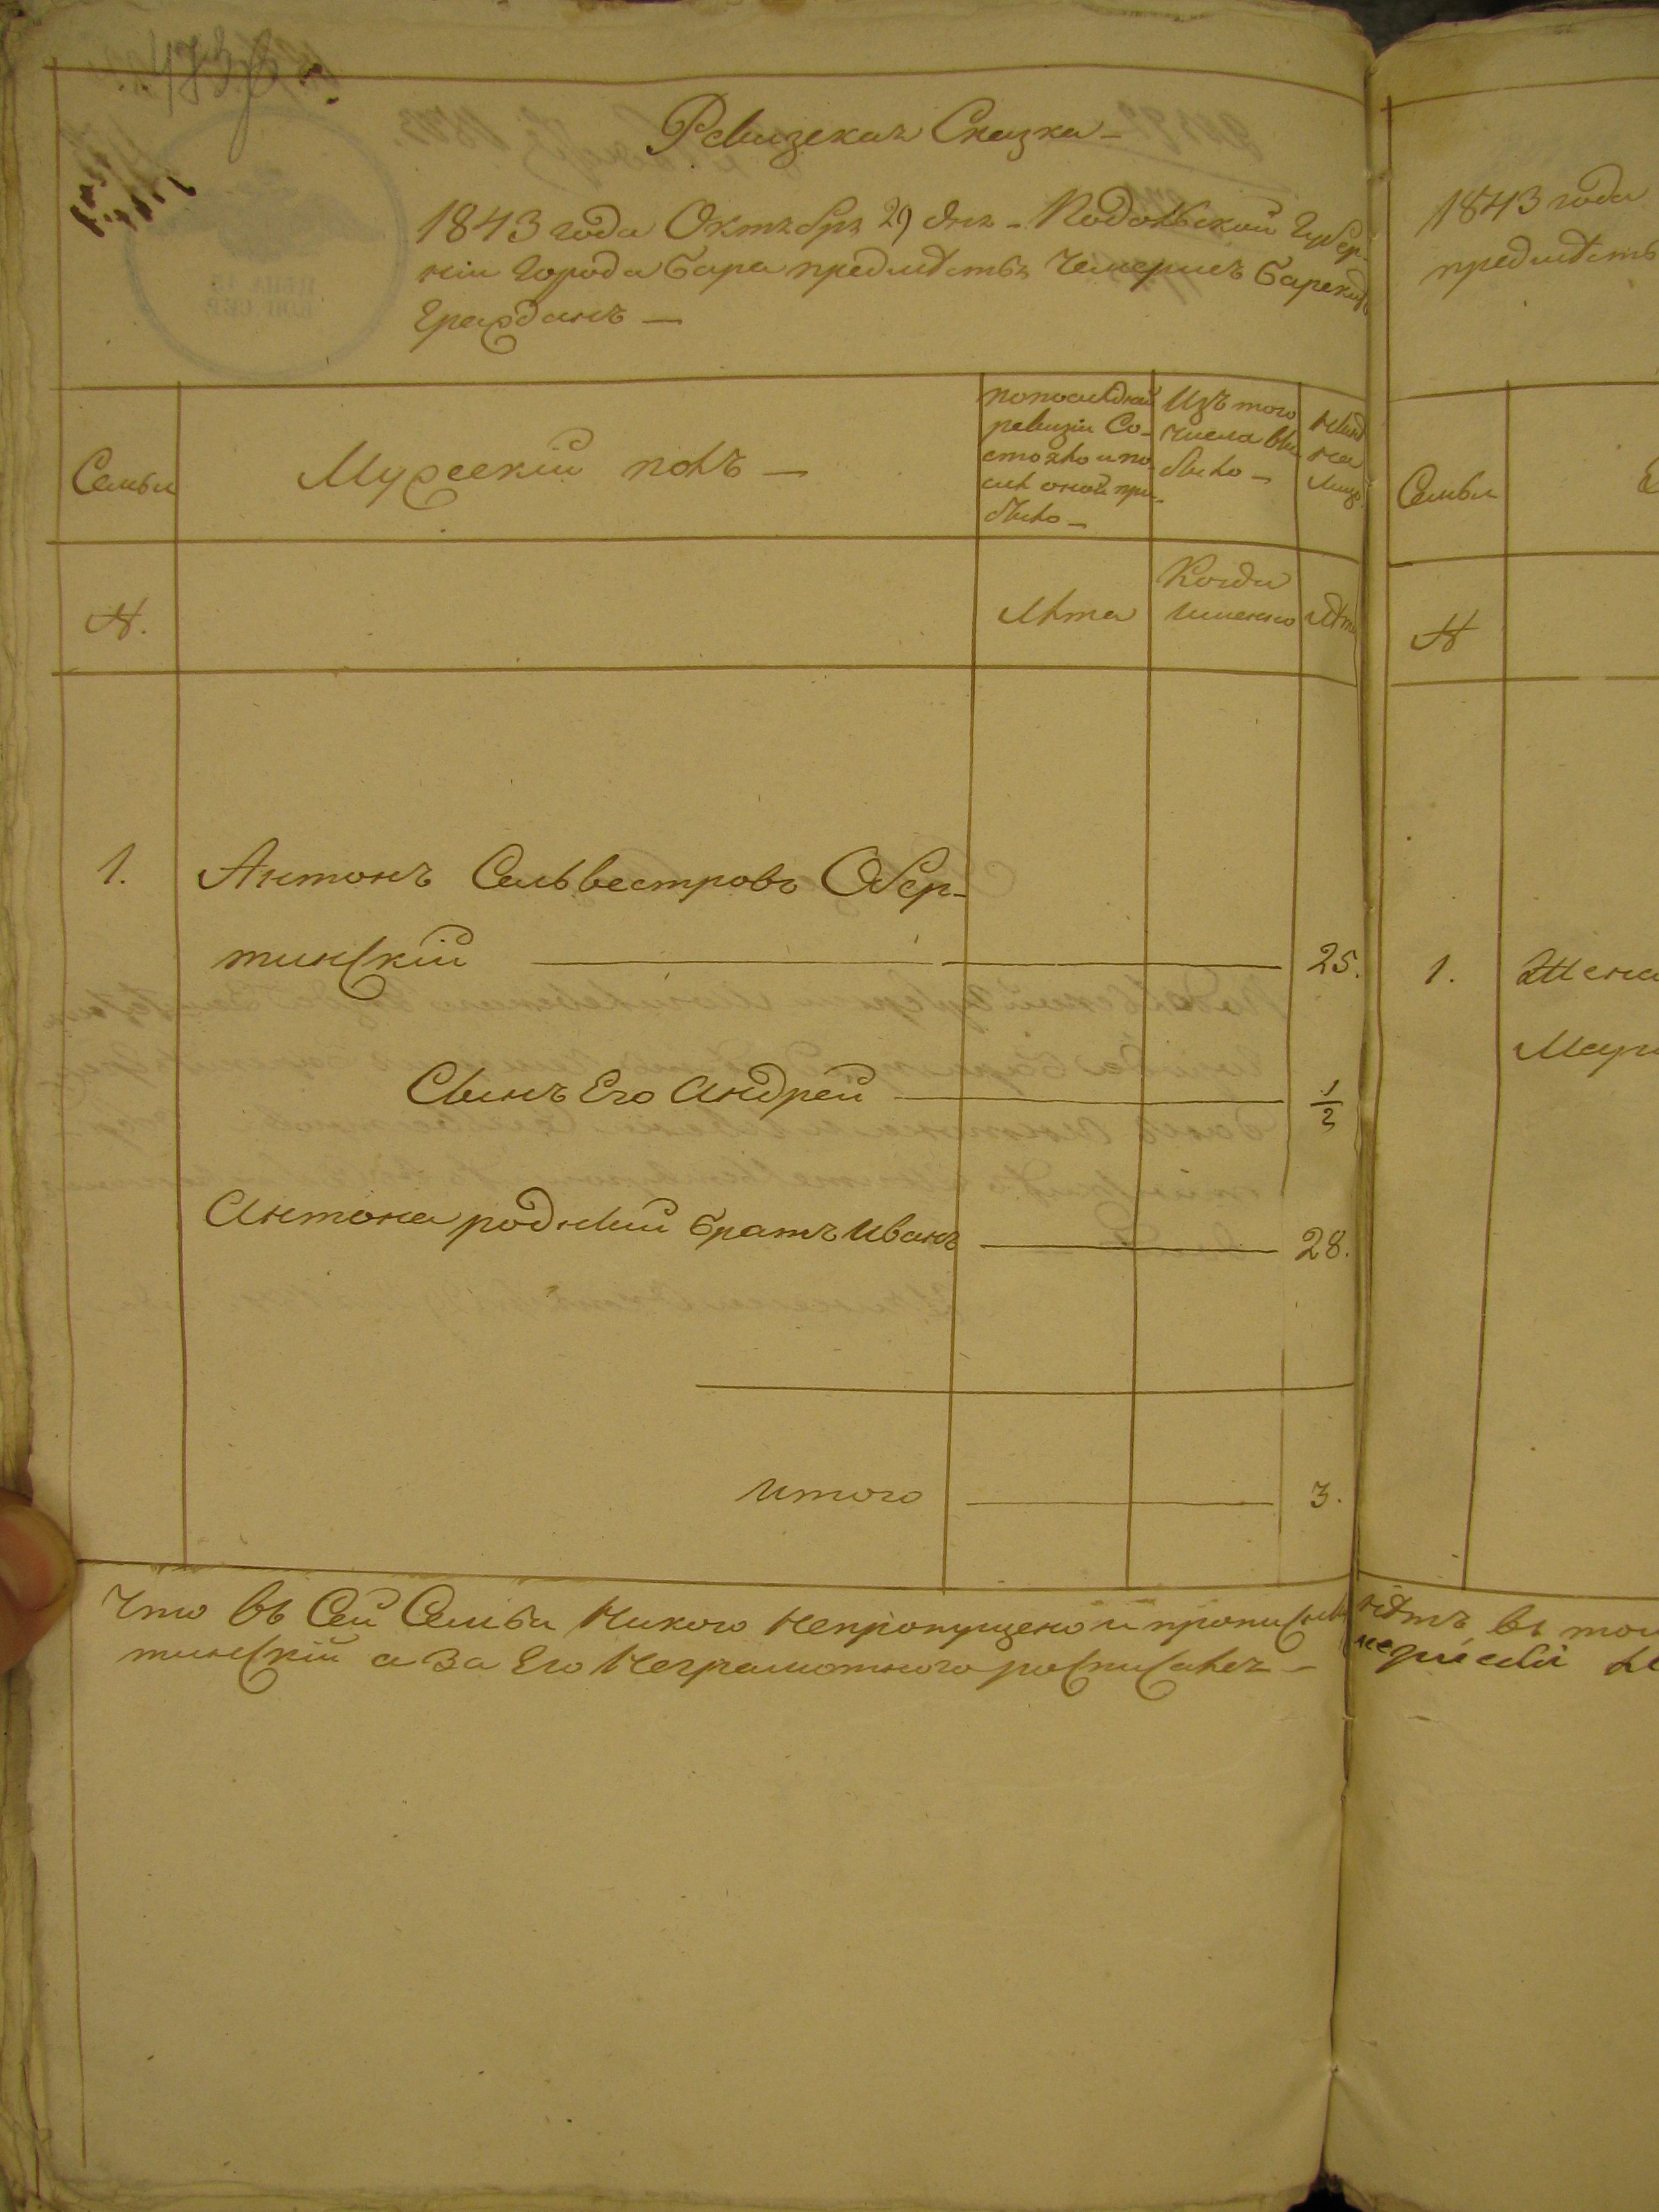 Ревизская Сказка
1843 года Октября 29 дня - Подольской Губер-
ніи Города Бара предмѣстья Чемерисъ Барскихъ
Гражданъ —
Семьи
Мужескій полъ —
по последней
ревизіи Со-
стояло и по-
слѣ оной при-
было —
Изъ того
числа вы
было —
Нынѣ
на
лицо
№.
Лѣта
Когда
именно
Лѣта
1. Антонъ Сельвестровъ Обер-
тинскій — 25.
Сынъ Его Андрей — 1/2
Антона родный братъ Иванъ — 28.
итого — 3.
Что въ Сей Семьи Никого Непропущено и
тинскій а За Его Неграмотного росписался -
1843 года
предмѣсть
Семьи
№
1. Жена